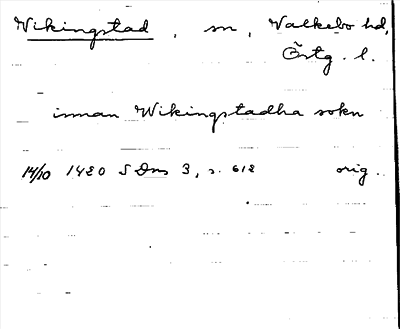 Vikingstad, sn, Valkebo hd,
Östg. l.
innan Wikingstadha sokn
14/10 1420 SDns 3, s. 612 orig.